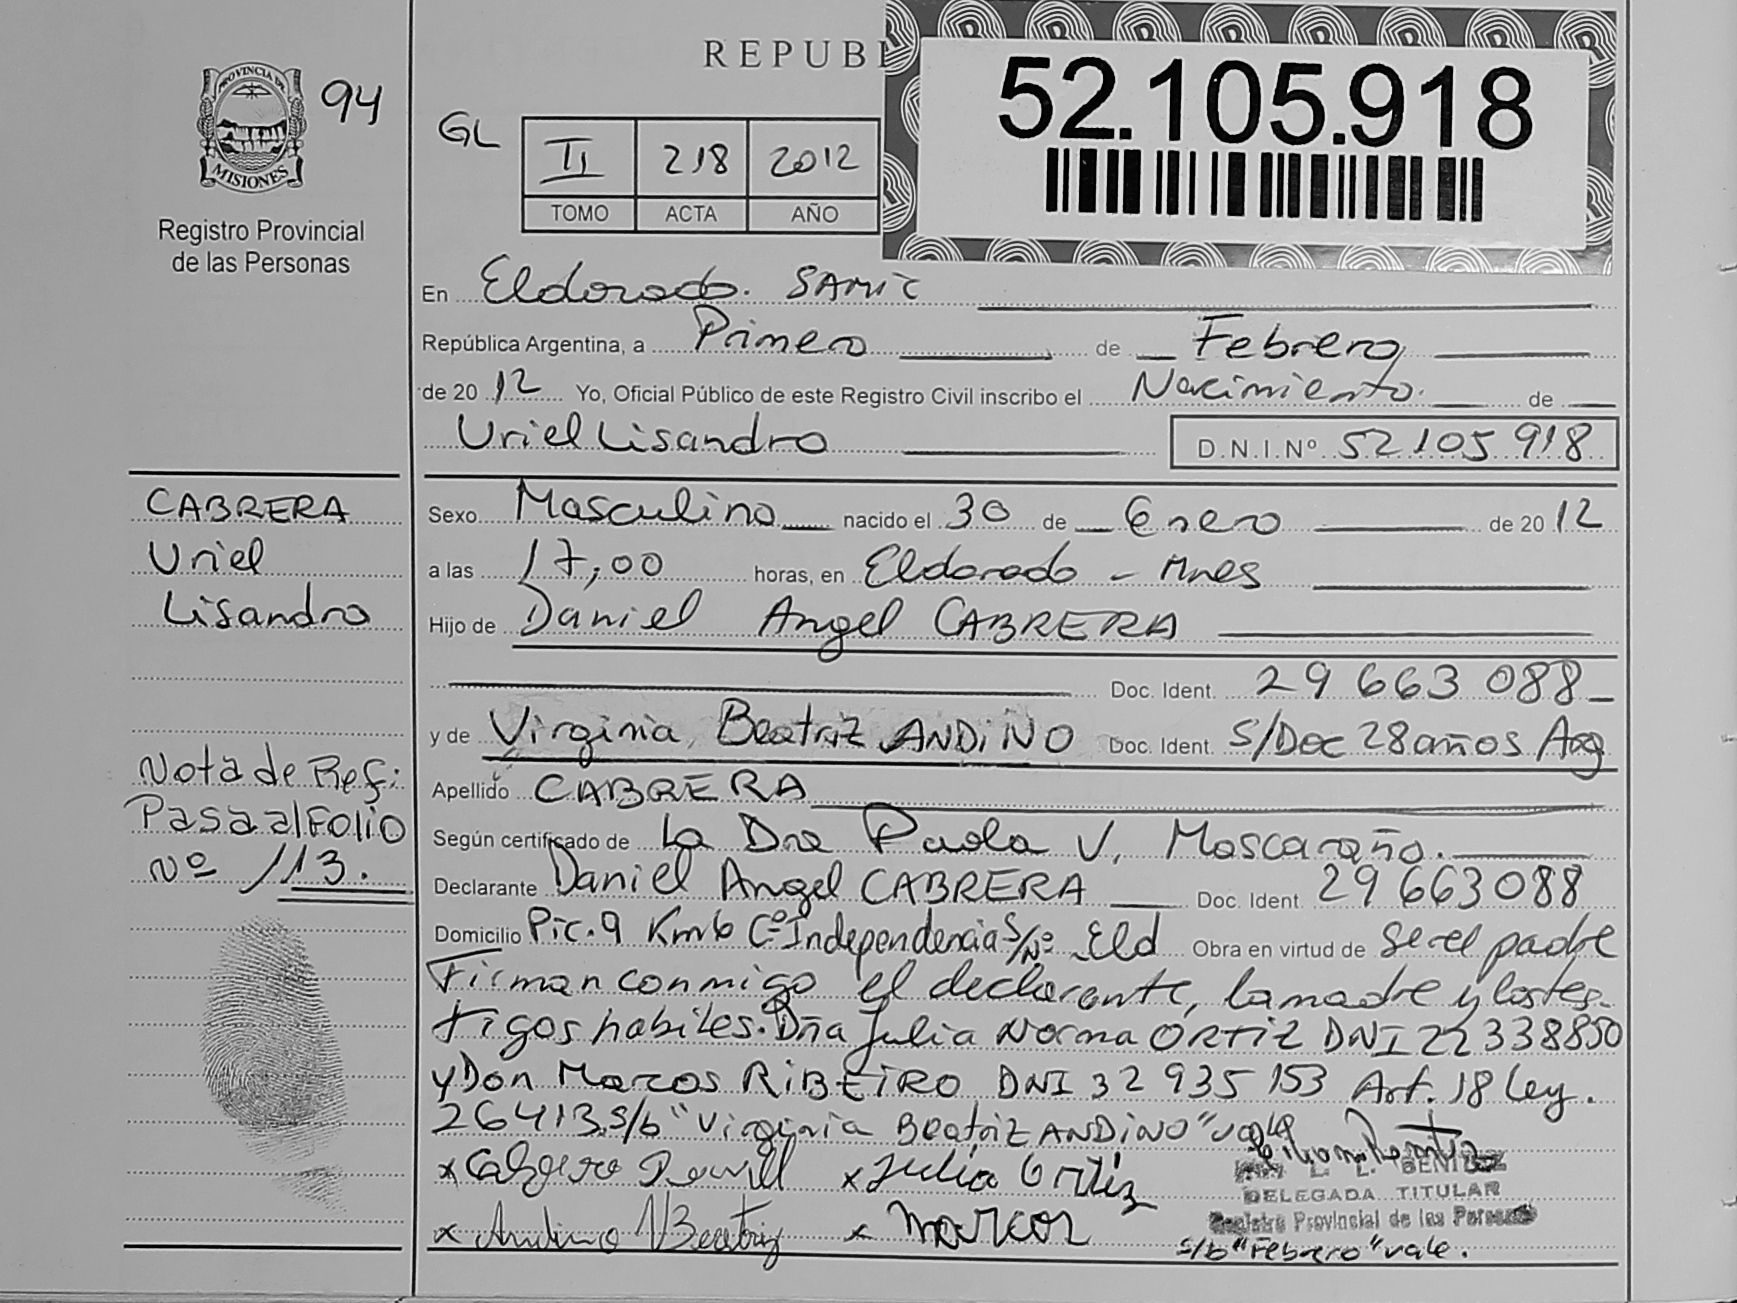 PROVINCIA DE
MISIONES
94
Registro Provincial
de las Personas
REPUBL
52.105.918
GL
II 218 2012
TOMO ACTA AÑO
En Eldorado. SAMIC
República Argentina, a Primero de Febrero
de 2012 Yo, Oficial Público de este Registro Civil inscribo el Nacimiento. de
Uriel Lisandro D.N.I.Nº 52105918
CABRERA
Uriel
Lisandro
Sexo Masculino nacido el 30 de Enero de 2012
a las 17,00 horas, en Eldorado - Mnes
Hijo de Daniel Angel CABRERA
Doc. Ident. 29 663 088
y de Virginia Beatriz ANDINO Doc. Ident. S/Doc 28 años Arg
Apellido CABRERA
Según certificado de La Dra Paola V. Moscaraño.
Declarante Daniel Angel CABRERA Doc. Ident. 29 663 088
Domicilio Pic. 9 Km 6 Cº Independencia S/Nº Eld Obra en virtud de Ser el padre
Firman conmigo el declarante, la madre y los tes-
tigos habiles. Dña Julia Norma ORTIZ DNI 22 338850
y Don Marcos RIBEIRO DNI 32 935 153 Art. 18 Ley.
26413. S/b "Virginia Beatriz ANDINO" vale
Nota de Ref:
Pasa al Folio
Nº 113.
x Julia Ortiz
x Andino V Beatriz x Marcos
BENITEZ
DELEGADA TITULAR
Registro Provincial de las Personas
S/b "Febrero" vale.